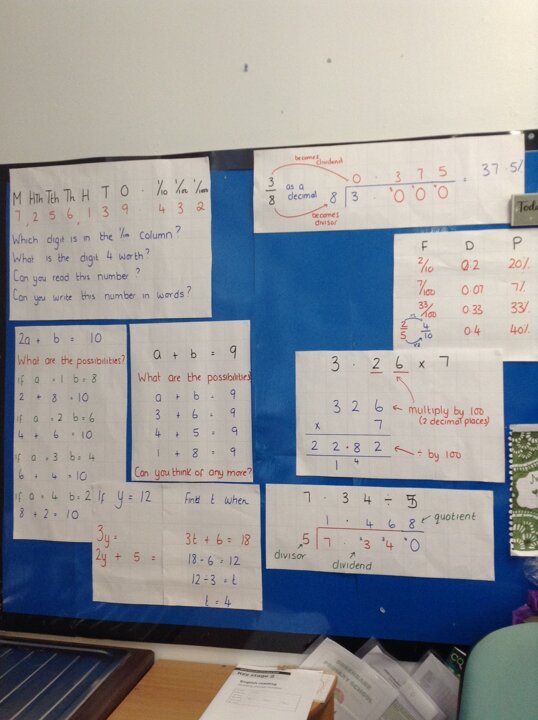 M HTh TTh Th H T O . 1/10 1/100 1/1000
7, 2 5 6, 1 3 9 . 4 3 2
Which digit is in the 1/100 column?
What is the digit 4 worth?
Can you read this number?
Can you write this number in words?
becomes dividend
3/8 as a decimal
0 . 3 7 5 = 37.5%
8 3 . ³0 ⁶0 ⁴0
becomes divisor
F D P
2/10 0.2 20%
7/100 0.07 7%
33/100 0.33 33%
2/5 4/10 0.4 40%
2a + b = 10
What are the possibilities?
If a = 1 b = 8
2 + 8 = 10
If a = 2 b = 6
4 + 6 = 10
If a = 3 b = 4
6 + 4 = 10
If a = 4 b = 2
8 + 2 = 10
a + b = 9
What are the possibilities
a + b = 9
3 + 6 = 9
4 + 5 = 9
1 + 8 = 9
Can you think of any more?
3 . 2 6 x 7
3 2 6 multiply by 100
(2 decimal places)
x 7
2 2 . 8 2 ÷ by 100
1 4
If y = 12
3y =
2y + 5 =
Find t when
3t + 6 = 18
18 - 6 = 12
12 ÷ 3 = t
t = 4
7 . 3 4 ÷ 5
1 . 4 6 8 quotient
5 7 . ²3 ³4 ⁴0
divisor
dividend
Key stage 2
English reading